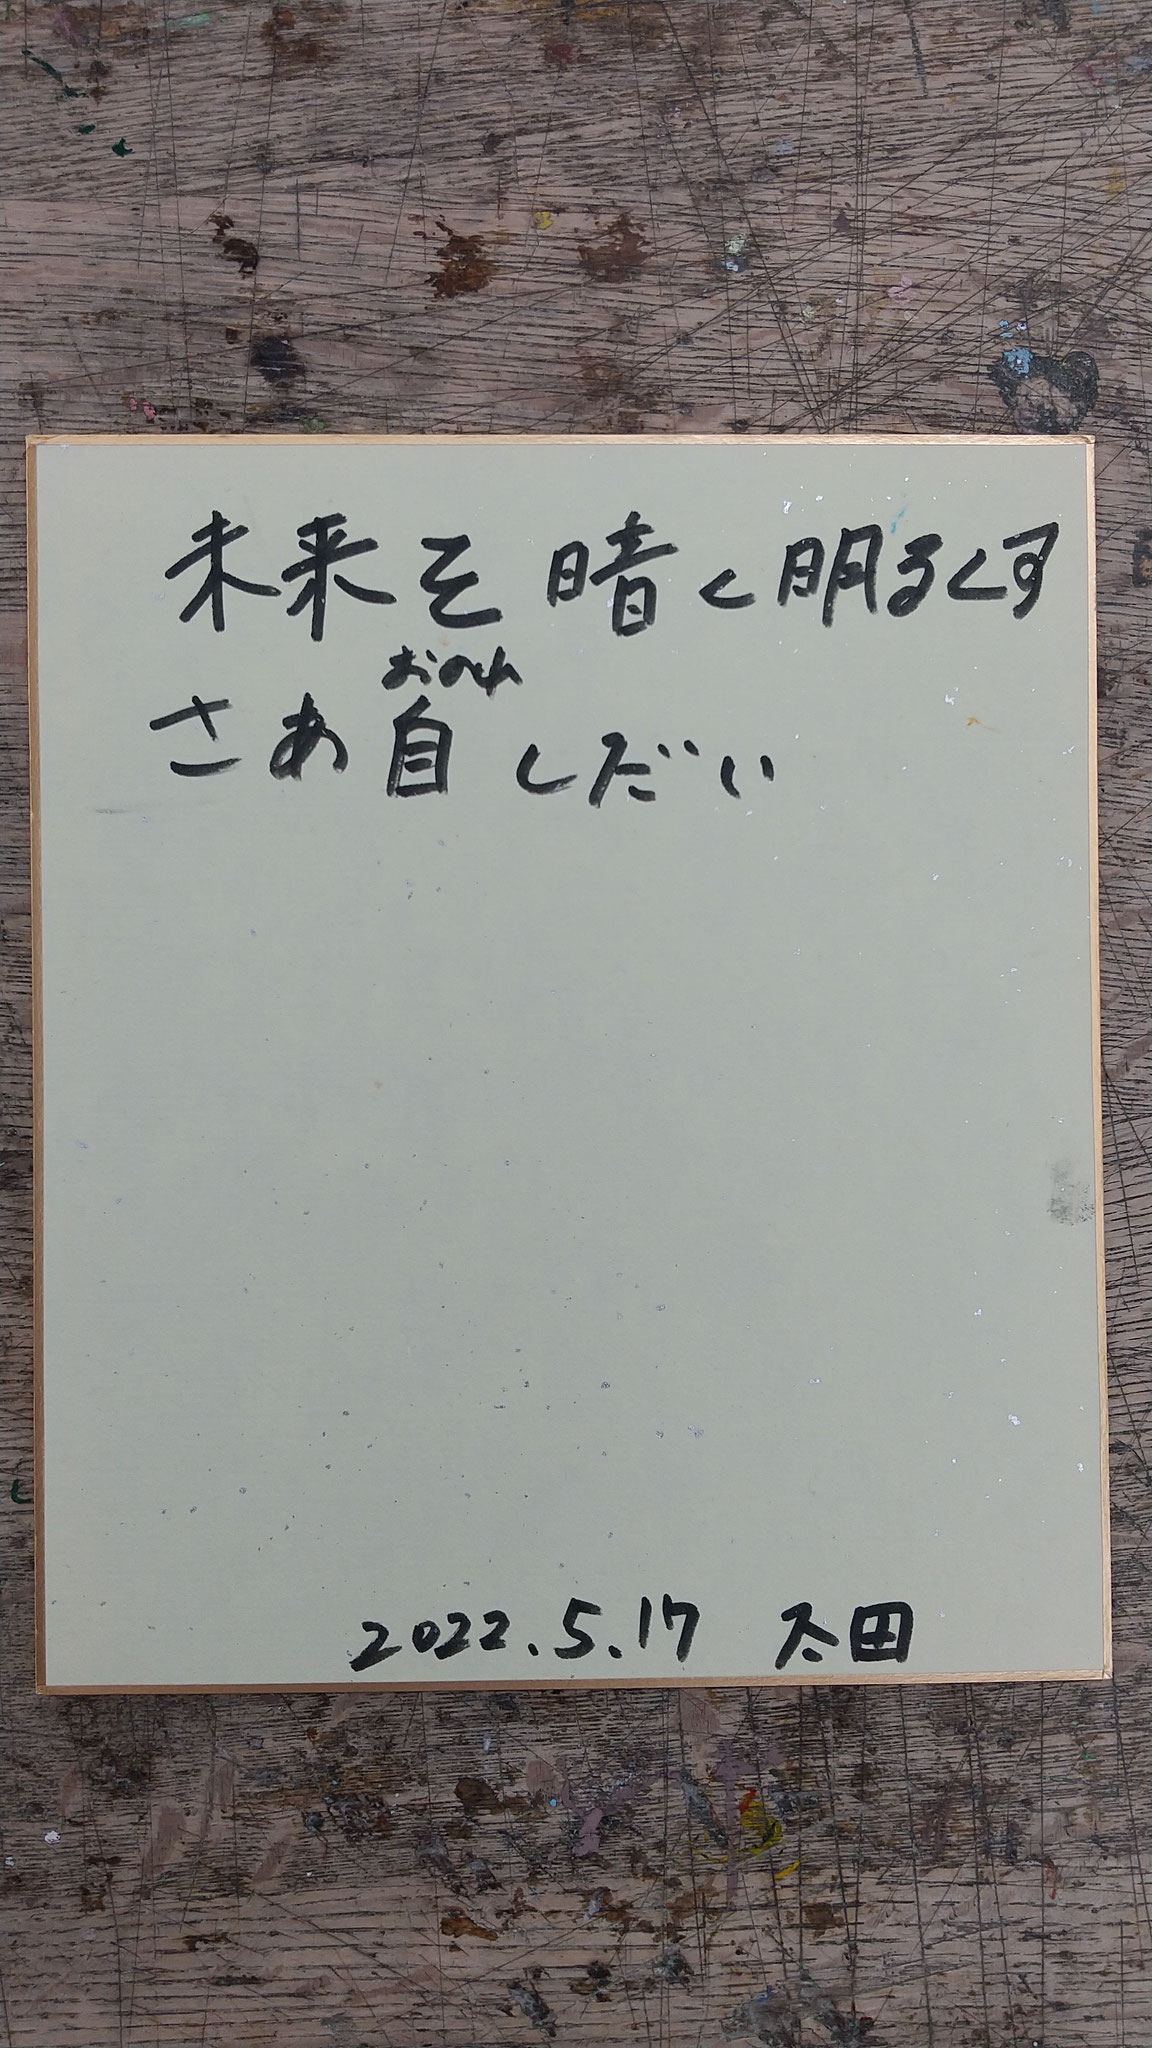 未来を暗く明るくす
おのれ
さあ自しだい
2022.5.17 太田